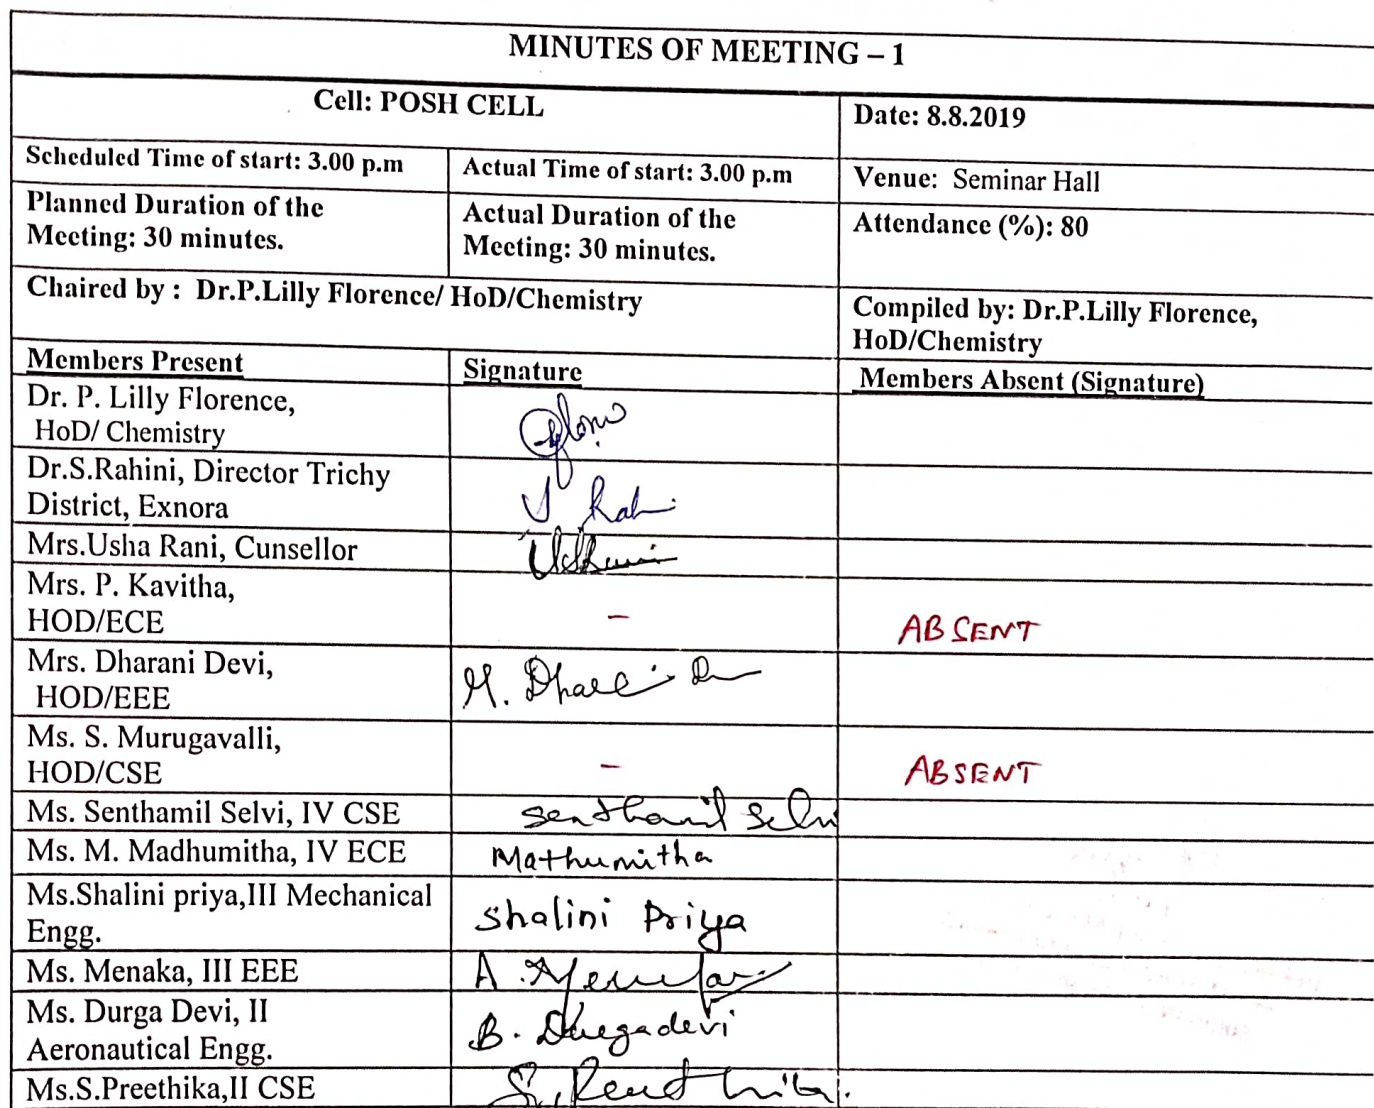 MINUTES OF MEETING – 1
Cell: POSH CELL
Date: 8.8.2019
Scheduled Time of start: 3.00 p.m
Actual Time of start: 3.00 p.m
Venue: Seminar Hall
Planned Duration of the
Meeting: 30 minutes.
Actual Duration of the
Meeting: 30 minutes.
Attendance (%): 80
Chaired by : Dr.P.Lilly Florence/ HoD/Chemistry
Compiled by: Dr.P.Lilly Florence,
HoD/Chemistry
Members Present
Signature
Members Absent (Signature)
Dr. P. Lilly Florence,
HoD/ Chemistry
Dr.S.Rahini, Director Trichy
District, Exnora
Mrs.Usha Rani, Cunsellor
Mrs. P. Kavitha,
HOD/ECE
–
ABSENT
Mrs. Dharani Devi,
HOD/EEE
Ms. S. Murugavalli,
HOD/CSE
–
ABSENT
Ms. Senthamil Selvi, IV CSE
Senthamil Selvi
Ms. M. Madhumitha, IV ECE
Mathumitha
Ms.Shalini priya,III Mechanical
Engg.
Shalini Priya
Ms. Menaka, III EEE
Ms. Durga Devi, II
Aeronautical Engg.
B. Durgadevi
Ms.S.Preethika,II CSE